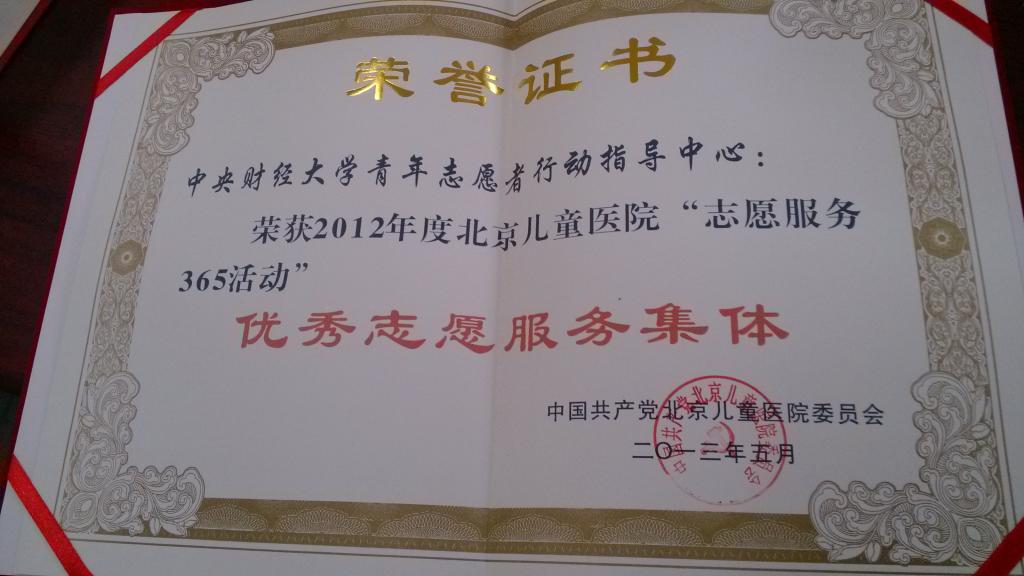 荣誉证书
中央财经大学青年志愿者行动指导中心：
荣获2012年度北京儿童医院“志愿服务
365活动”
优秀志愿服务集体
中国共产党北京儿童医院委员会
二〇一三年五月
中国共产党北京儿童医院委员会